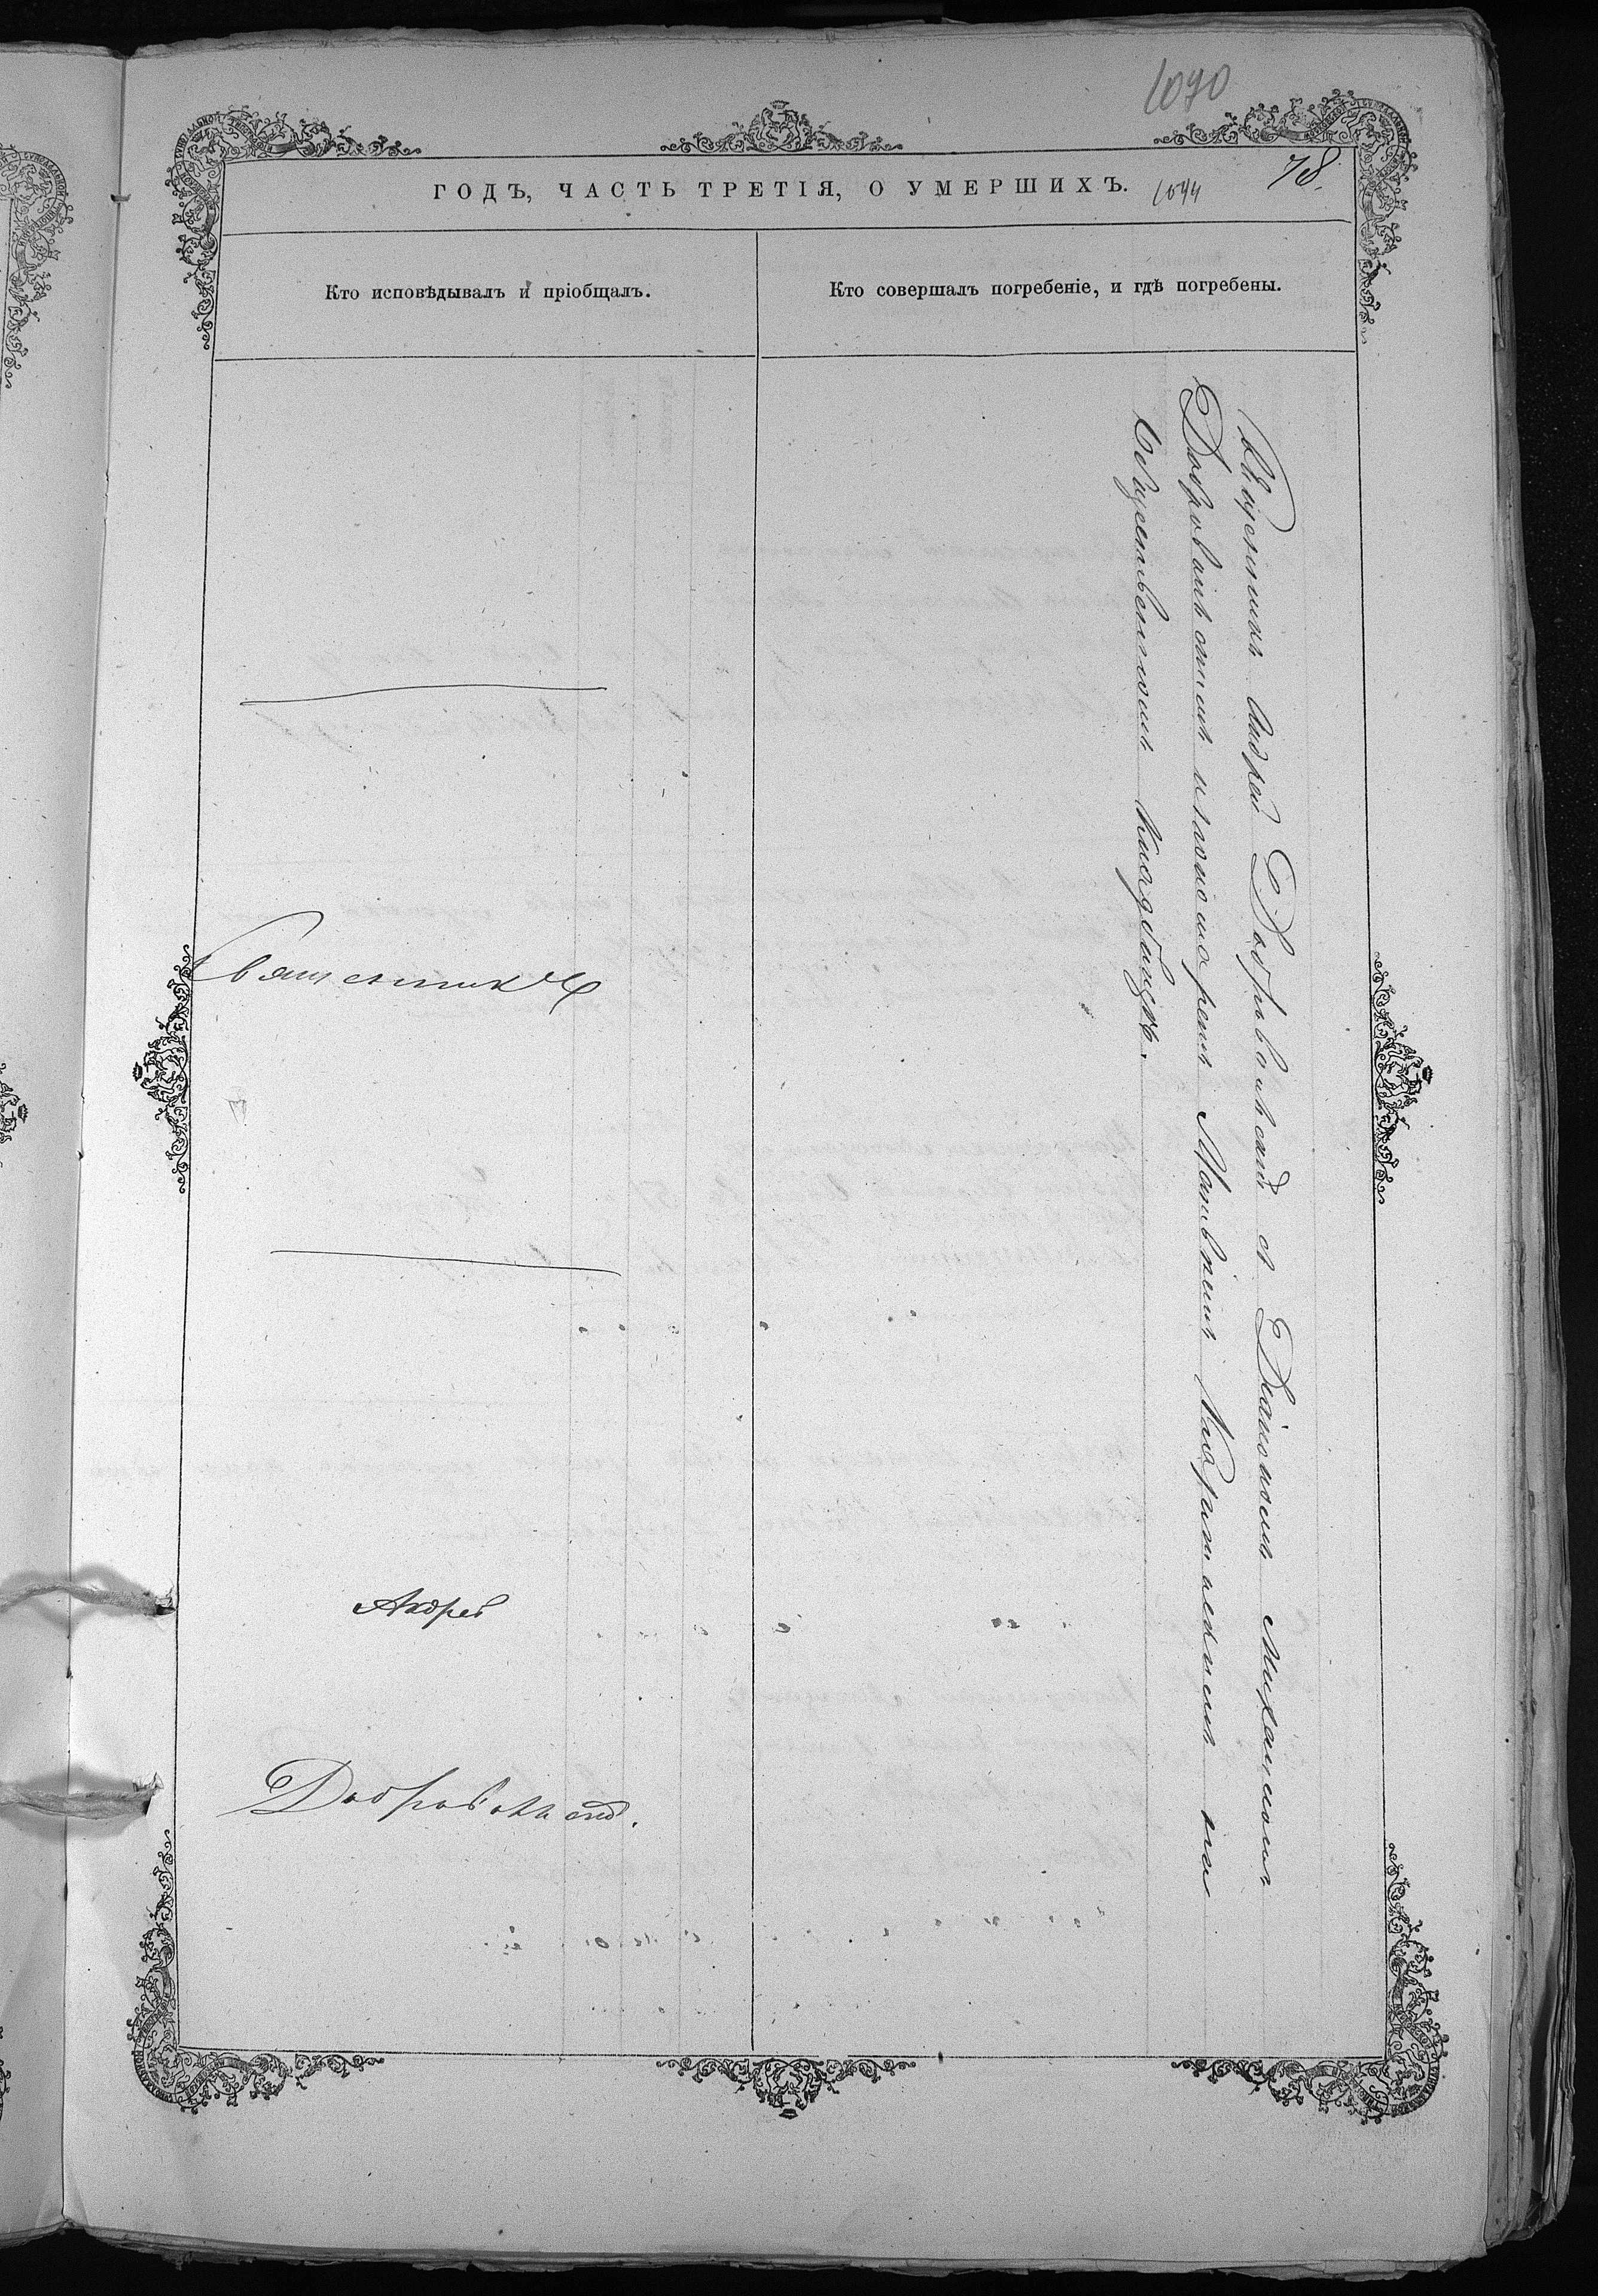 1090
78.
ГОДЪ, ЧАСТЬ ТРЕТІЯ, О УМЕРШИХЪ.
1044
Кто исповѣдывалъ и пріобщалъ.
Кто совершалъ погребеніе, и гдѣ погребены.
Священникъ
Андрей
Добровольскій.
Священникъ Андрей Добровольскій съ Діакономъ Михаиломъ
Добровольскимъ и пономаремъ Матвѣемъ на
Общественномъ кладбищѣ.